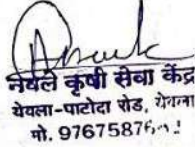 नवले कृषी सेवा केंद्र
येवला-पाटोदा रोड, येवला
मो. 97675876